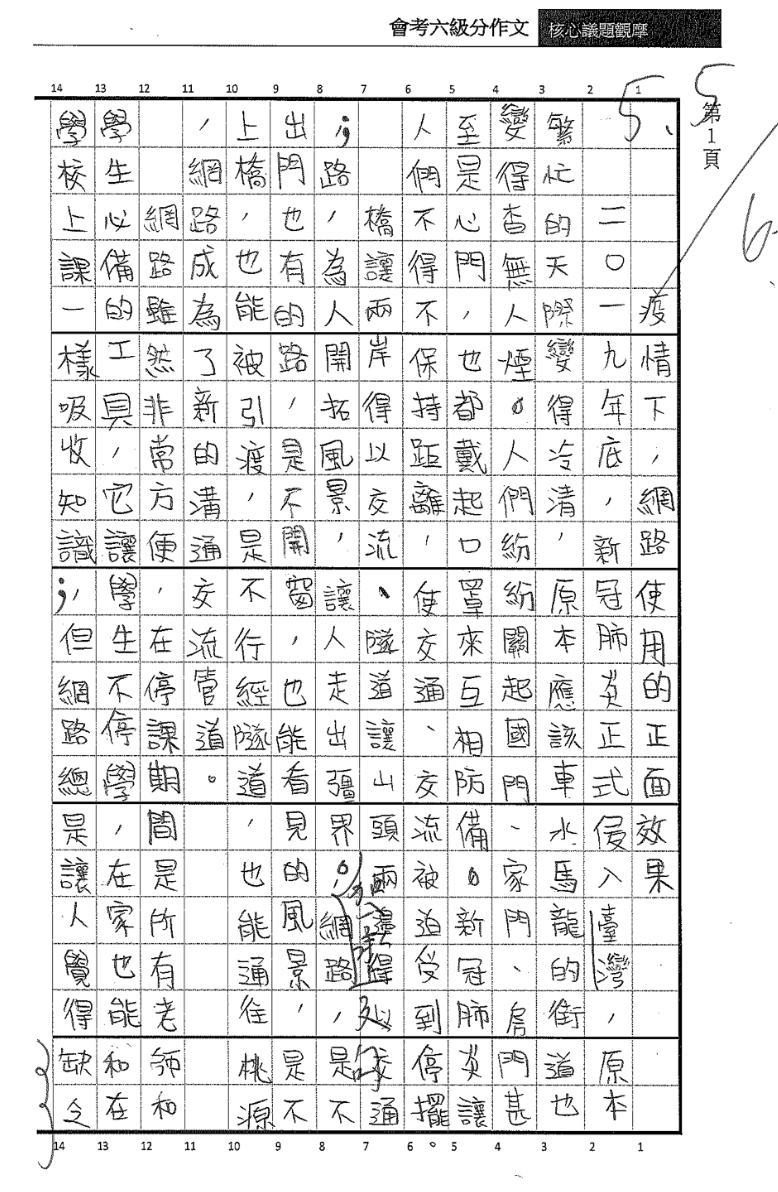 會考六級分作文 核心議題觀摩
第1頁
5
5
6
疫情下,網路使用的正面效果
二〇一九年底,新冠肺炎正式侵入臺灣,原本
繁忙的天際變得冷清,原本應該車水馬龍的街道也
變得杳無人煙。人們紛紛關起國門、家門、房門甚
至是心門,也都戴起口罩來互相防備。新冠肺炎讓
人們不得不保持距離,使交通、交流被迫受到停擺。
橋讓兩岸得以交流、隧道讓山頭兩邊得以交通
;路,為人開拓風景,讓人走出疆界;網路,是不
出門也有的路,是不開窗,也能看見的風景,是不
上橋,也能被引渡,是不行經隧道,也能通往桃源
,網路成為了新的溝通交流管道。
網路雖然非常方便,在停課期間是所有老師和
學生必備的工具,它讓學生不停學,在家也能和在
學校上課一樣吸收知識;但網路總是讓人覺得缺令